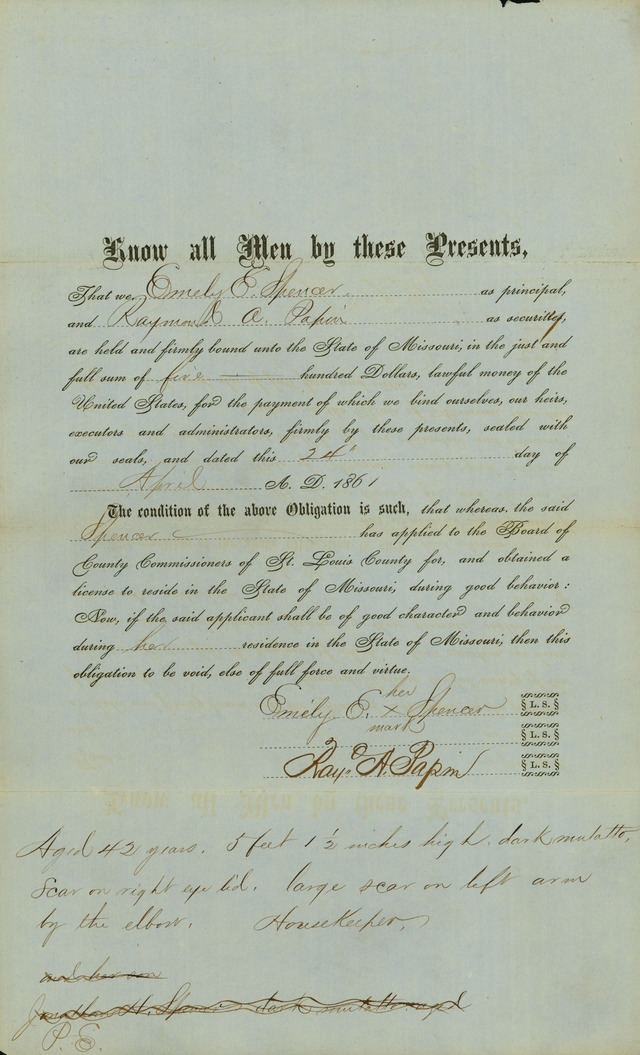 Know all Men by these Presents,
That we Emely E. Spencer as principal,
and Raymond A. Papin as security,
are held and firmly bound unto the State of Missouri, in the just and
full sum of five hundred Dollars, lawful money of the
United States, for the payment of which we bind ourselves, our heirs,
executors and administrators, firmly by these presents, sealed with
our seals, and dated this 24" day of
April A. D. 1861
The condition of the above Obligation is such, that whereas, the said
Spencer has applied to the Board of
County Commissioners of St. Louis County for, and obtained a
license to reside in the State of Missouri, during good behavior:
Now, if the said applicant shall be of good character and behavior
during her residence in the State of Missouri, then this
obligation to be void, else of full force and virtue.
her
Emely E. x Spencer § L. S. §
mark
§ L. S. §
Ray.d A. Papin § L. S. §
Aged 42 years. 5 feet 1 1/2 inches high. dark mulatto,
Scar on right eye lid. large scar on left arm
by the elbow. Housekeeper,
and her son
H. dark mulatto aged
P. E.